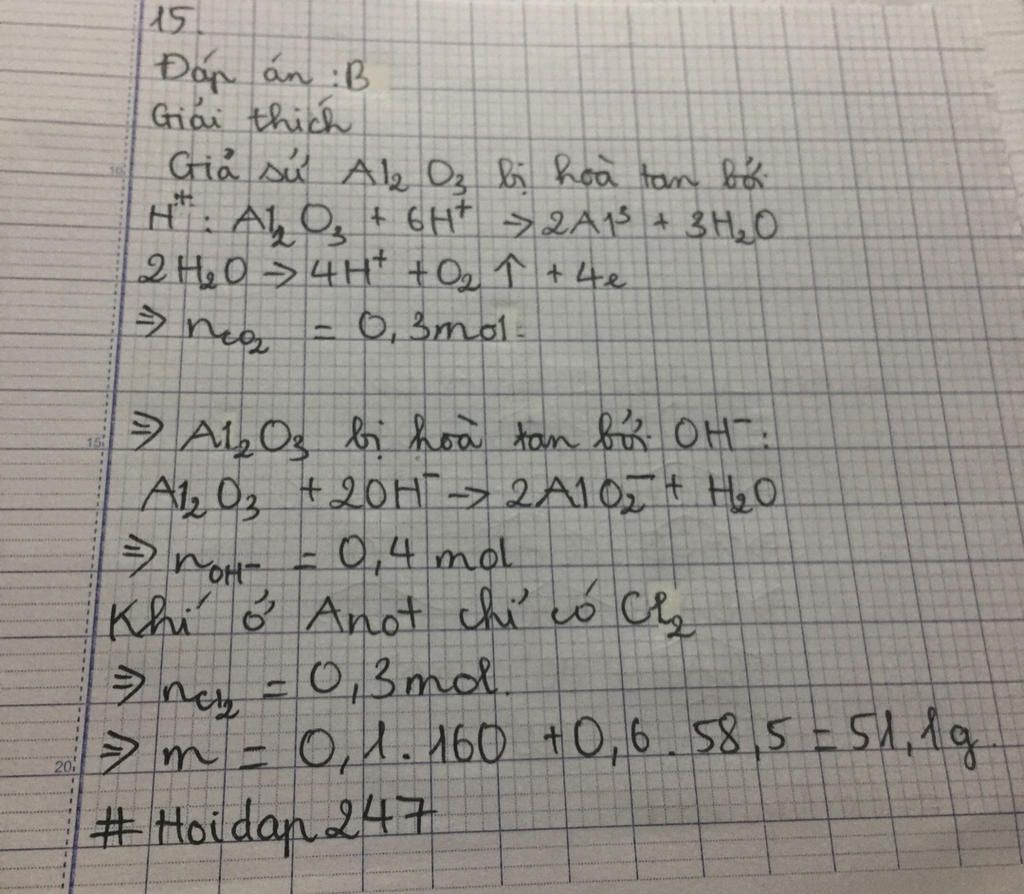 15.
Đáp án : B
Giải thích
Giả sử Al₂O₃ bị hoà tan bởi
H⁺ : Al₂O₃ + 6H⁺ → 2Al³ + 3H₂O
2H₂O → 4H⁺ + O₂ ↑ + 4e
⇒ nCO₂ = 0,3mol.
⇒ Al₂O₃ bị hoà tan bởi OH⁻ :
Al₂O₃ + 2OH⁻ → 2AlO₂⁻ + H₂O
⇒ nOH⁻ = 0,4 mol
Khí ở Anot chỉ có Cl₂
⇒ nCl₂ = 0,3mol.
⇒ m = 0,1.160 + 0,6.58,5 = 51,1g.
# Hoidap247
15
20